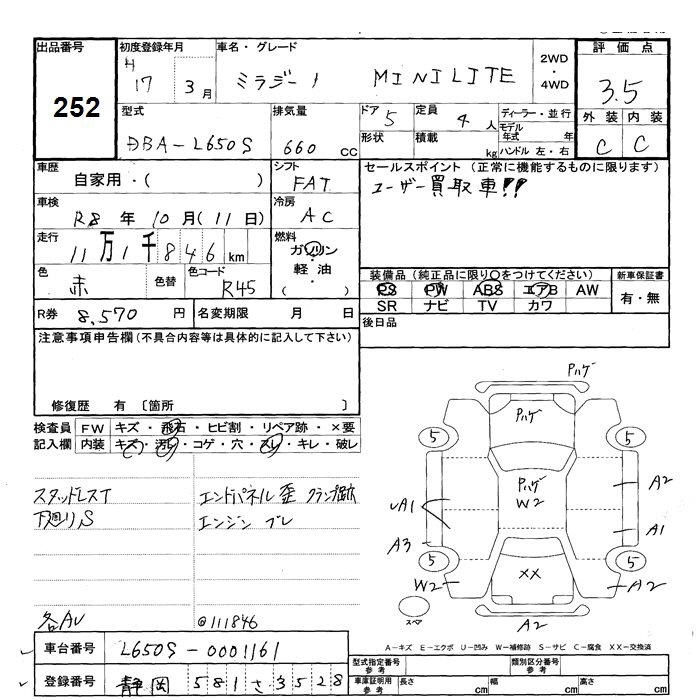 出品番号
252
初度登録年月
H
17 3月
車名・グレード
ミラジーノ MINILITE
2WD
・
4WD
評価点
3.5
外装 内装
C C
型式
DBA-L650S
排気量
660 cc
ドア 5
形状
定員 4 人
積載 kg
ディーラー・並行
モデル年式 年
ハンドル 左・右
車歴
自家用・( )
シフト
FAT
車検
R8 年 10月(11日)
冷房
AC
走行
11万1千846 km
燃料
ガソリン
軽油
( )
色
赤
色替
色コード
R45
R券 8,570 円
名変期限 月 日
セールスポイント (正常に機能するものに限ります)
ユーザー買取車!!
装備品 (純正品に限り○をつけてください)
PS PW ABS エアB AW
SR ナビ TV カワ
新車保証書
有・無
後日品
注意事項申告欄 (不具合内容等は具体的に記入して下さい)
修復歴 有 〔箇所 〕
検査員 FW キズ・飛石・ヒビ割・リペア跡・×要
記入欄 内装 キズ・汚れ・コゲ・穴・スレ・キレ・破レ
スタッドレスT
下廻りS
エンドパネル歪 クランプ跡
エンジン ブレ
各AU
@111846
Pハゲ
Pハゲ
Pハゲ
W2
5
5
5
5
A2
A1
A2
UA1
A3
W2
XX
A2
スペア
A-キズ E-エクボ U-凹み W-補修跡 S-サビ C-腐食 XX-交換済
車台番号 L650S-0001161
登録番号 静岡 581 さ 3528
型式指定番号
参考
類別区分番号
参考
車庫証明用
参考
長さ cm
幅 cm
高さ cm